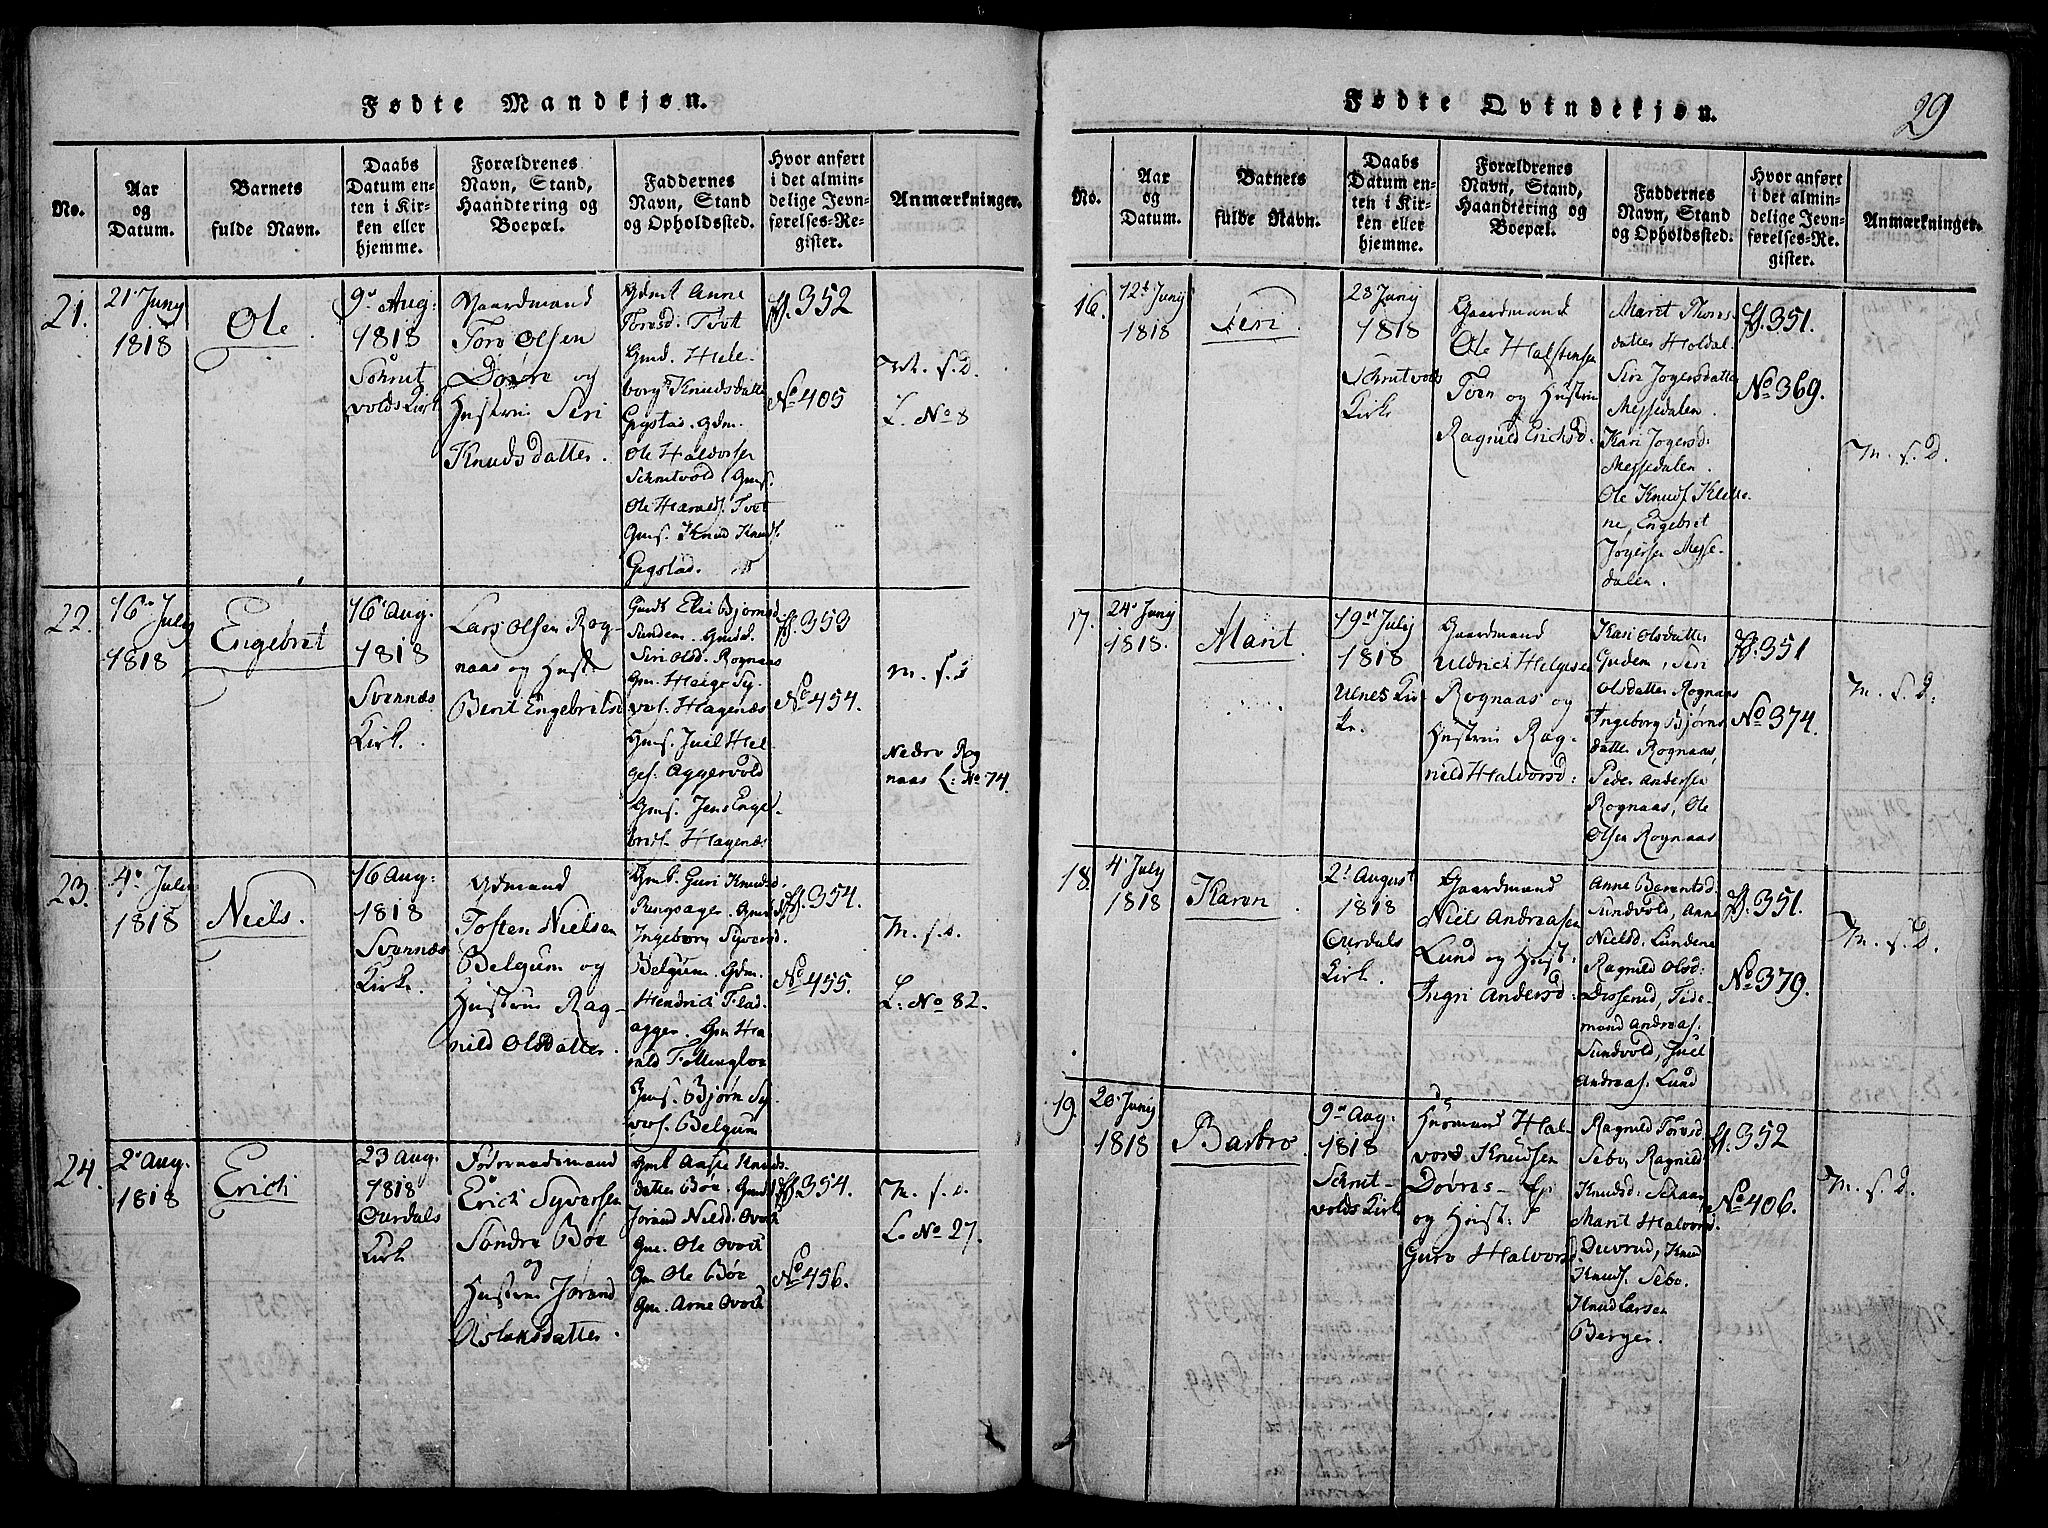 Fødte Mandkjøn.
No.
Aar
og
Datum.
Barnets
fulde Navn.
Daabs
Datum en-
ten i Kir-
ken eller
hjemme.
Forældrenes
Navn, Stand,
Haandtering og
Boepæl.
Faddernes
Navn, Stand
og Opholdssted.
Hvor anført
i det almin-
delige Jevn-
førelses-Re-
gister.
Anmærkninger.
21.
21' Juny
1818
Ole
9de Aug:
1818
Schrut
volds Kirk
Gaardmand
Tore Olsen
Døvre og
Hustrue Siri
Knudsdatter.
Gdmt Anne
Toresd. Tvet
Gmd. Hele-
borg Knudsdatter
Gigstad. Gdm.
Ole Halvorsen
Schrutvold. Gms.
Ole Haralds. Tvet
Gms. Knud Knuds.
Gigstad.
fl. 352
No 405
M. s. D.
L. No 8
22.
16' July
1818
Engebret
16' Aug.
1818
Svennæs
Kirk.
Lars Olsen Rog-
naas og Hustr
Berit Engebritsd
Gmdt Eli Bjørnsd.
Sundem. Gmdd.
Siri Olsd. Rognaas
Gm. Helge Sy-
vers. Hagenæs
Gms. Juel Hel-
ges. Aggervold
Gms. Jens Engel
brits. Hagenæs
fl. 353
No 454.
M. s. D
Nedre Rog
naas L: No 74.
23.
4' July
1818
Niels.
16 Aug:
1818
Svennæs
Kirk.
Gdmand
Tosten Nielsen
Belgum og
Hustrue Rag-
nild Olsdatter.
Gmk. Guri Knudsd.
Ringsager. Gmd
Ingeborg Syversd.
Belgum. Gdm.
Hendrich Flad-
agger. Gm Ha
rald Follingloe
Gms. Bjørn Sy
vers. Belgum
fl. 354.
No 455.
M. s. D.
L: No 82.
24.
2' Aug.
1818
Erich
23 Aug.
1818
Ourdals
Kirk
Føderaadsmand
Erich Syversen
Søndre Bøe
og
Hustrue Jørand
Aslaksdatter.
Gmk Aase Knuds-
datter Bøe, Gmd
Jørand Nielsd. Qvoch
Gm. Ole Qvoch
Gm Ole Bøe
Gm. Arne Qvoch
fl. 354.
No 456.
M. s. D.
L. No 27.
Fødte Qvindekjøn.
29
No.
Aar
og
Datum.
Barnets
fulde Navn.
Daabs
Datum en-
ten i Kir-
ken eller
hjemme.
Forældrenes
Navn, Stand,
Haandtering og
Boepæl.
Faddernes
Navn, Stand
og Opholdssted.
Hvor anført
i det almin-
delige Jevn-
førelses-Re-
gister.
Anmærkninger.
16.
12t Junij
1818
Siri.
28 Junij
1818
Schrutvolds
Kirk
Gaardmand
Ole Halstensen
Tveen og Hustrue
Ragnild Erichsd.
Marit Thores-
datter Holdal
Siri Jogersdatter
Messedalen.
Kari Jogersd:
Messedalen.
Ole Knuds. Klette-
ne, Engebret
Jøgersen Messe-
dalen.
fl. 351.
No 369.
M. s. D.
17.
24' Juny
1818.
Marit
19de July
1818
Ulnes Kir
ke.
Gaardmand
Uldrich Helgesen
Rognaas og
Hustrue Rag-
nild Halvorsd:
Kari Olsdatter
Gudem, Siri
Olsdatter Rognaas
Ingeborg Bjørns
datter Rognaas,
Peder Andersen
Rognaas, Ole
Olsen Rognaas
fl. 351
No 374.
M. s. D:
18.
4' July
1818
Karen
2' August
1818
Ourdals
Kirk.
Gaardmand
Niels Andreasen
Lund og Hust:
Ingri Andersd:
Anne Berentsd.
Sundvold, Anne
Nielsd. Lundene
Ragnild Olsd:
Disserud, Tide-
mand Andreas.
Sundvold, Juel
Andreas. Lund
fl. 351.
No 379.
M. s. D.
19.
20' Juny
1818
Barbro
9de Aug:
1818
Schrut-
volds Kirk
Huusmand Hal-
vord Knudsen
Døvres- Ej
og Hust:
Guro Halvorsd
Ragnild Toresd
Sebo, Ragnild
Knudsd: Skaar
Marit Halvord.
Duvrud, Knud
Knuds. Sebo.
Knud Larsen
Berger.
fl. 352
No 406.
M. s. D.